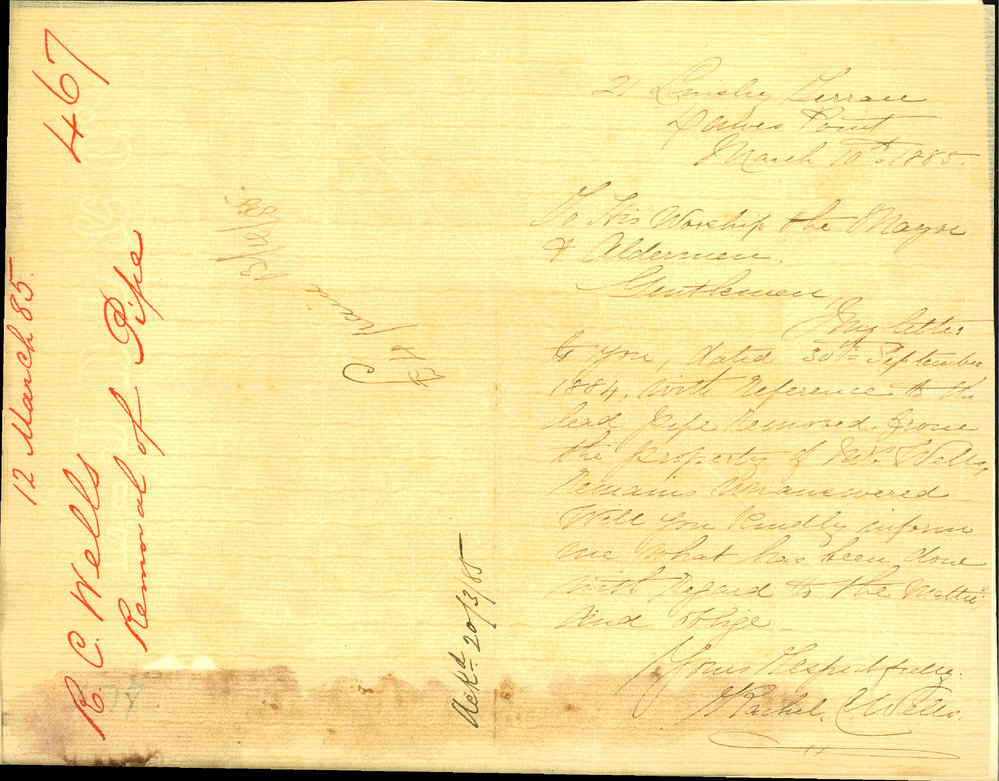 467
12 March 85.
R. C. Wells
Removal of Pipe
Ackd 20/3/85
21 Terrace
Dawes Point
March 10th 1885.
To His Worship the Mayor
& Aldermen.
Gentlemen,
My letter
to you, dated 30th September
1884, with reference to the
lead pipe removed from
the property of Mr. Wells,
remains unanswered
Will you kindly inform
me what has been done
with regard to the matter
and oblige
Yours Respectfully.
Rachel. C. Wells.